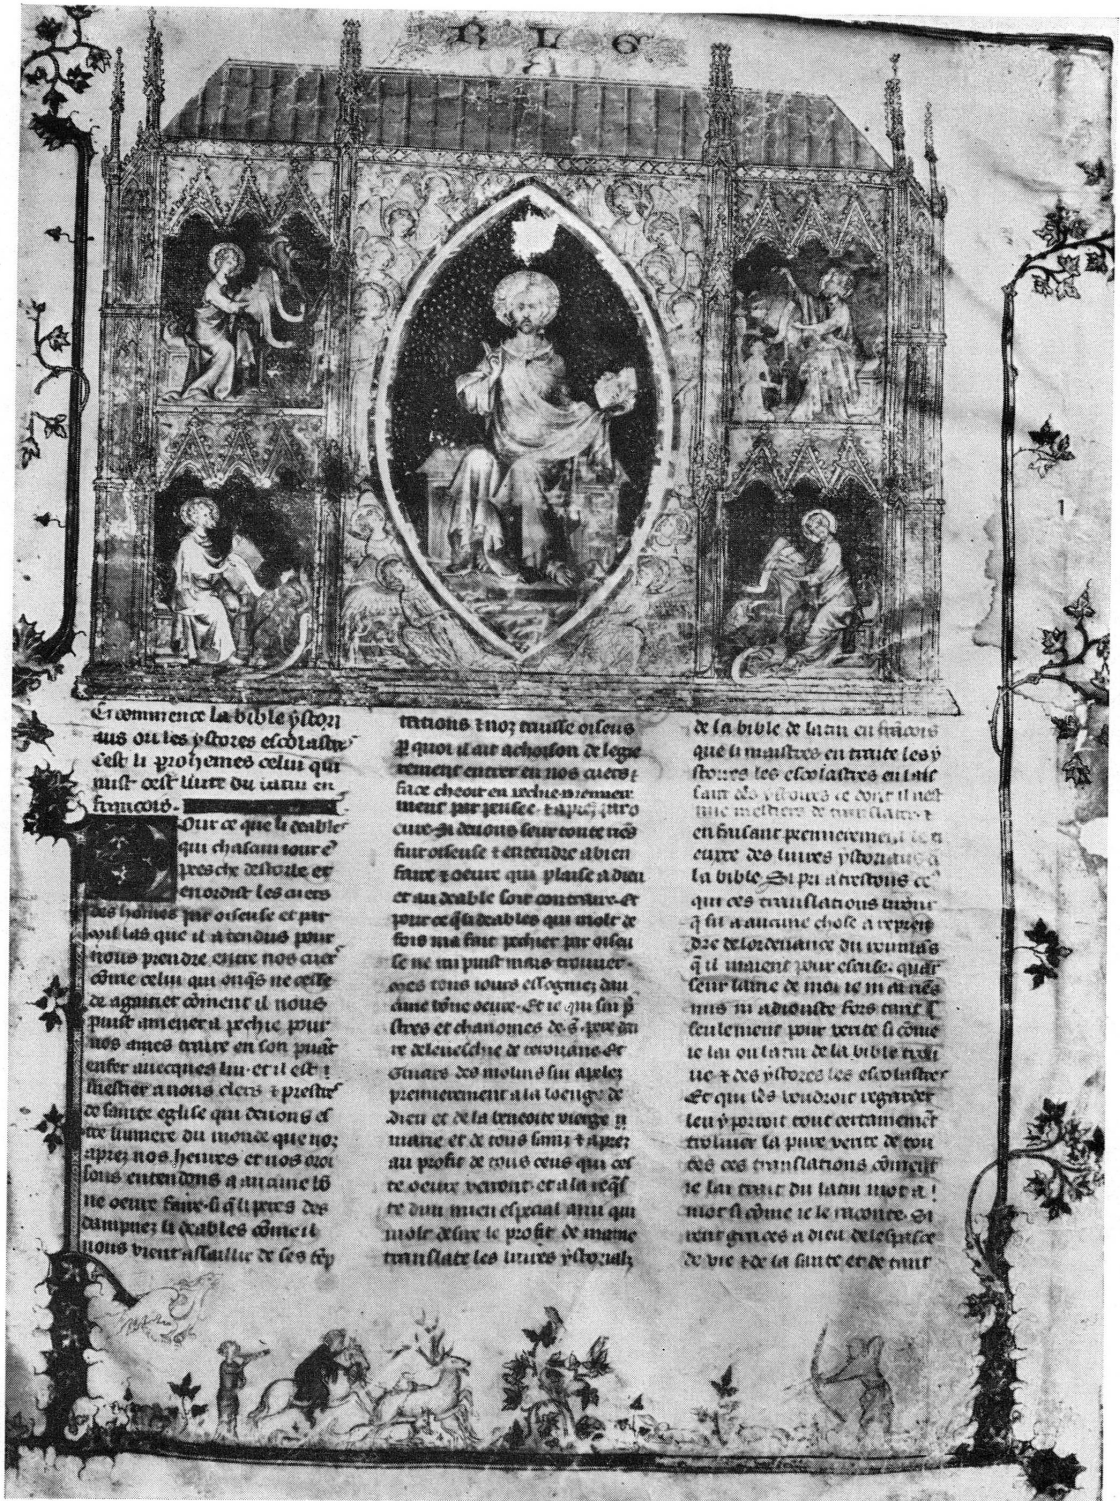 B L E
1
Ci commence la bible ystori
aus ou les ystores escolastres
Cest li prohemes celui qui
mist cest livre du latin en
francois.
Pour ce que li deables
qui chascun jour
et
en ordist les cuers
des homes par oiseuse et par
mil las que il a tendus pour
nous prendre entre nos cuers
come celui qui onqs ne cesse
de agaitier coment il nous
puist amener a pechie pour
nos ames traire en son puant
enfer avecques lui. et il est
mestier a nous clers et prestres
de sainte eglise qui devons es
tre lumiere du monde que nos
apres nos heures et nos oroi
sons entendons a aucune bo
ne oeuvre faire. si q li peres des
dampnez li deables come il
nous vient assaillir de ses tep
tations & noz truisse oiseus
p quoi il ait achoison de legie
rement entrer en nos cuers &
face cheoir en pechie
ment par pensee. & apres
cuvre. Si devons seur toute
fuir oiseuse & entendre a bien
faire & oeuvre qui plaise a dieu
et au deable soit contraire. Et
pour ce q li deables qui molt de
fois ma fait pechier par oiseu
se ne mi puist mais trouver.
mes tous jours essogniez dau
cune bone oeuvre. Et je qui sui p
stres et chanoines de s. pere dai
re de leveschie de terouane. Et
Guiars des molins sui apelez
premierement a la loenge de
dieu et de la beneoite vierge
marie et de tous sains & apres
au profit de tous ceus qui ces
te oeuvre verront. et a la reqs
te dun mien especial ami qui
molt desire le profit de mame
translate les livres ystoriaus
de la bible de latin en francois
que li maistres en traite les y
stoires les escolastres en lais
sant des ystoires ce dont il nest
nue mestiers de translater &
en faisant premierement le
euvre des livres ystoriaus
la bible. Si pri a trestous ceus
qui ces translations
q sil a aucune chose a repren
dre de lordenance du
q il maient pour escuse. quar
seur lame de moi je ni ai
mis ni adjouste fors tant
seulement pour verite si come
je lai ou latin de la bible trou
ve & des ystores les escolastres
Et qui les voudroit regarder
leu y porroit tout certainement
trouver la pure verite de tou
tes ces translations coment
je lai trait du latin mot a
mot si come je le raconte. Si
rent graces a dieu de lespasce
de vie & de la sante et de tant